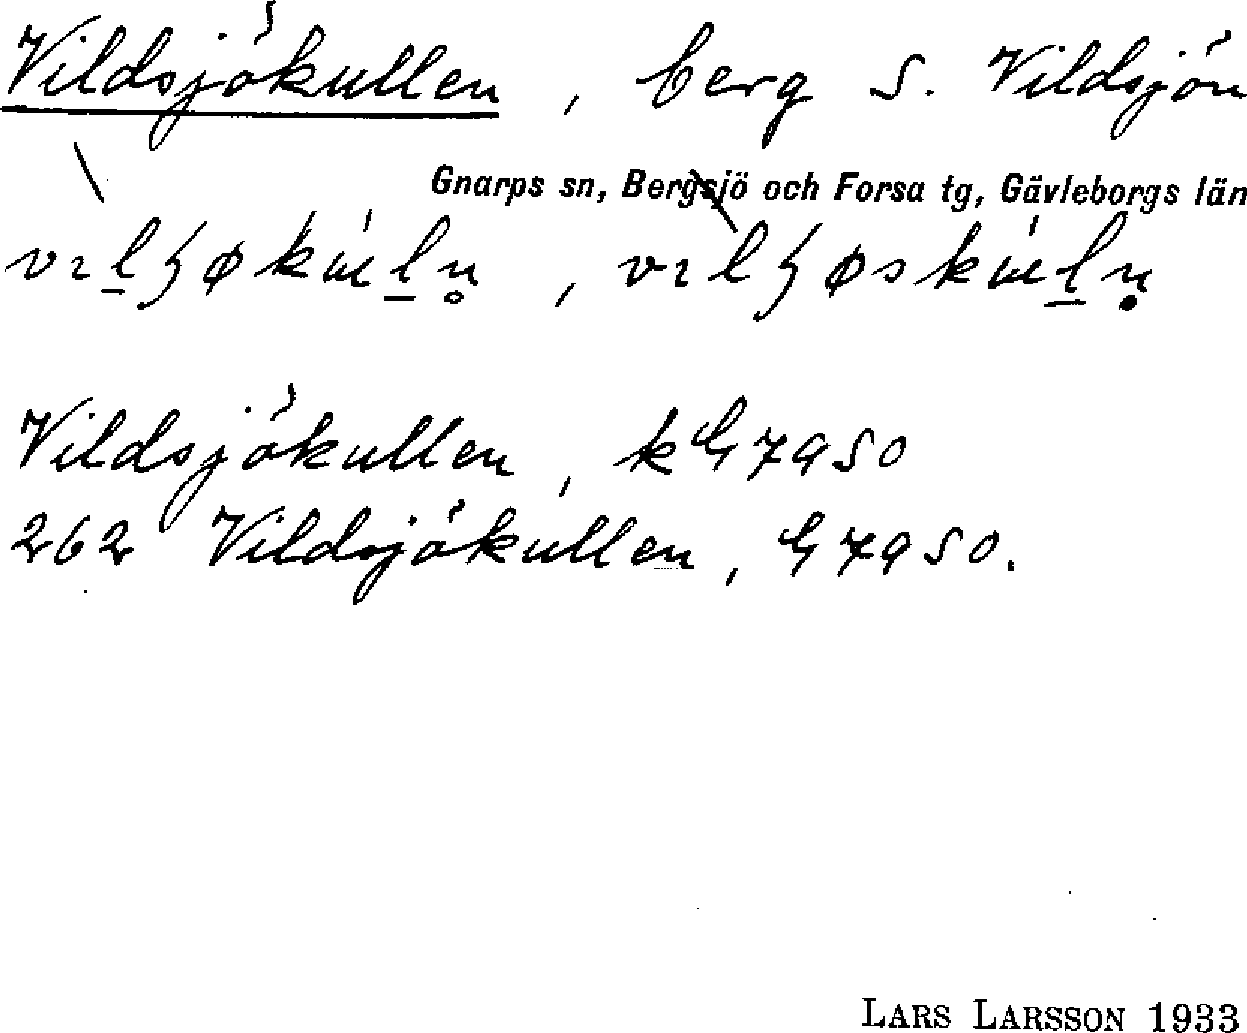 Vildsjökullen, berg S. Vildsjön
Gnarps sn, Bergsjö och Forsa tg, Gävleborgs län
Vildsjökullen, k G 79 SO
262 Vildsjökullen, G 79 SO.
LARS LARSSON 1933